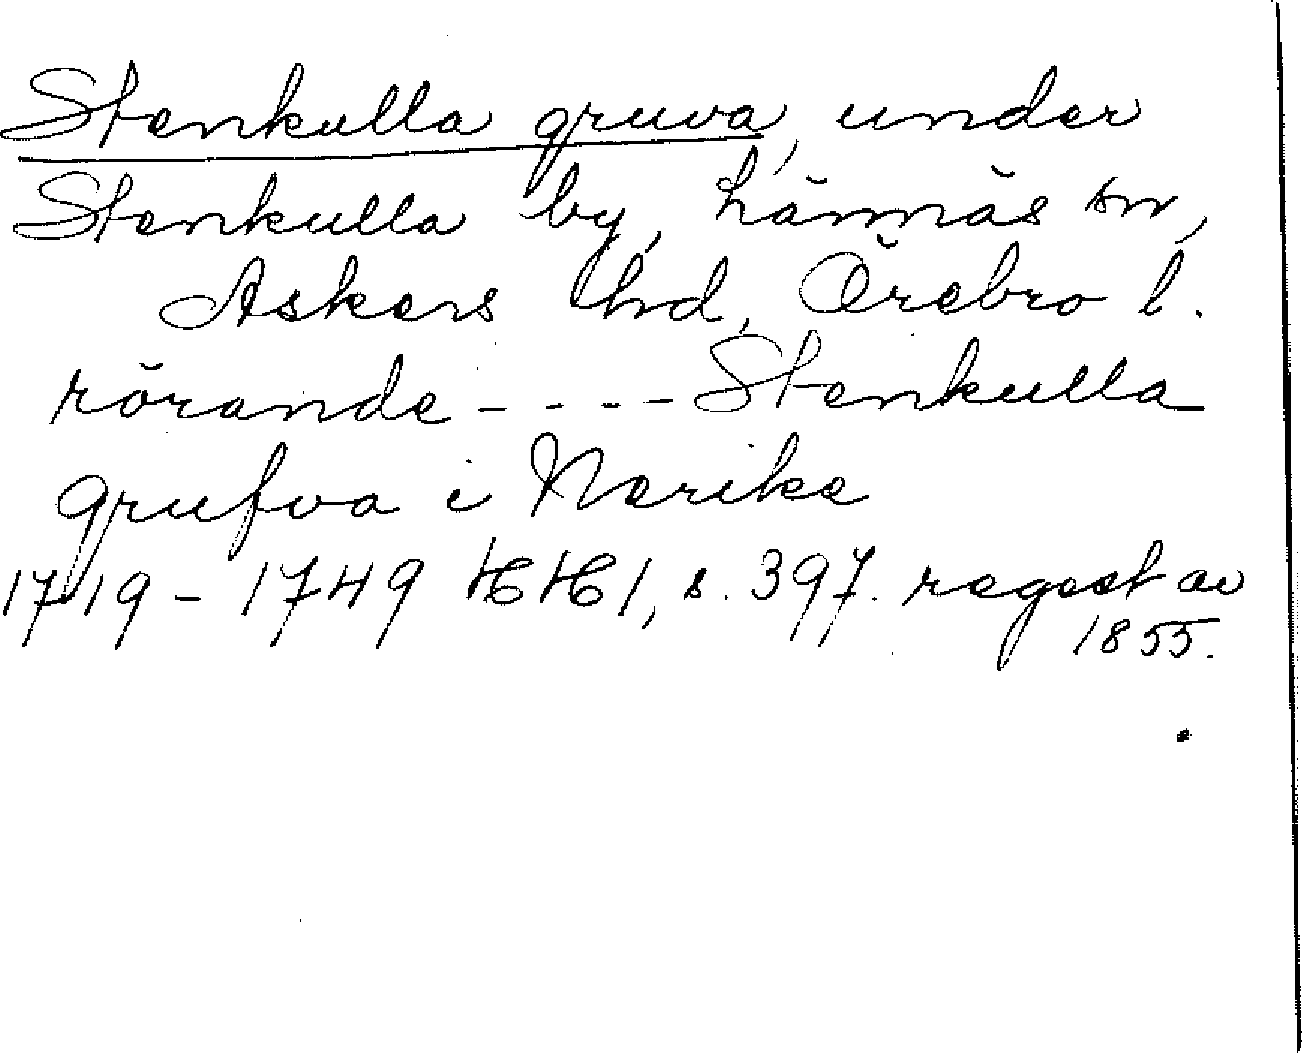 Stenkulla gruva, under
Stenkulla by, Lännäs sn,
Askers hd, Örebro l.
rörande - - - - Stenkulla
grufva i Nerike
1719 - 1749 HH1, s. 397. regest av
1855.